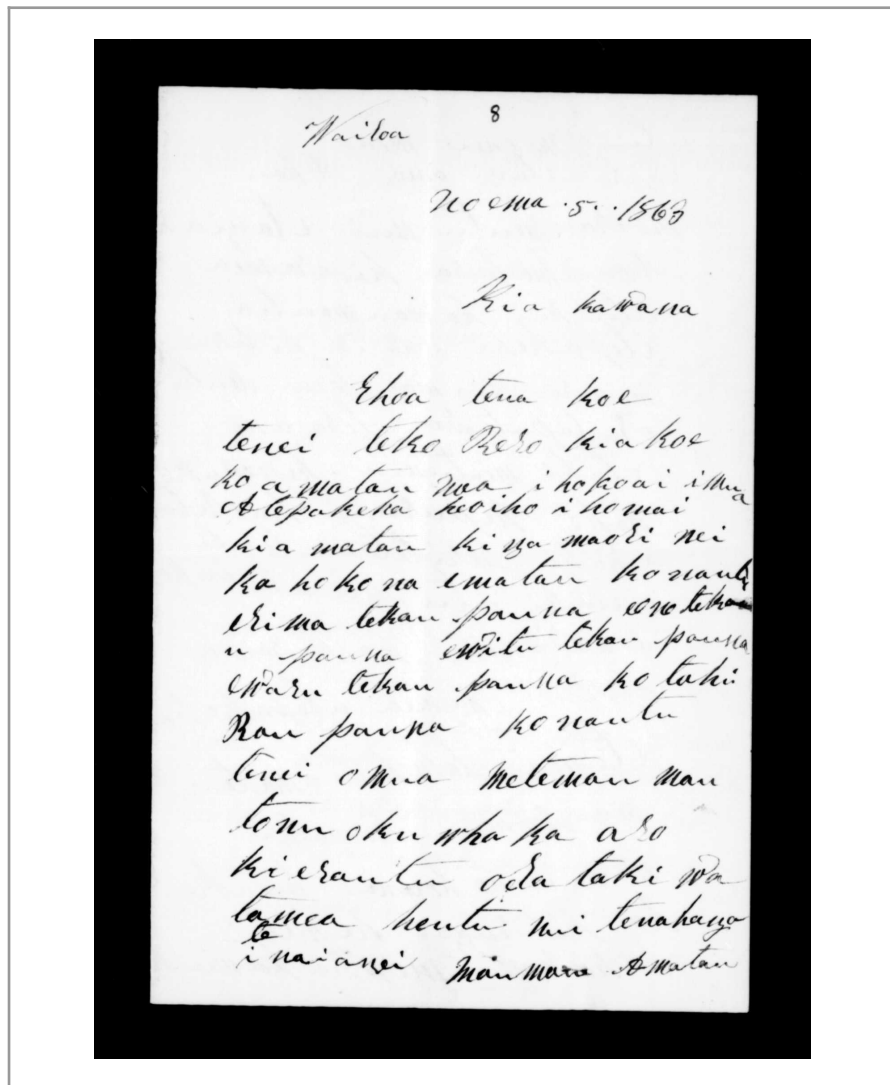 8
Wairoa
noema .5. 1863
Kia kawana
Ehoa tena koe
tenei teko Rero kia koe
ko a matau noa i hokoai i mua
Atepakeha heoiho i homai
kia matau kinga maori nei
ka hoko na ematau ko nautu
erima tekau pauna eono teka
u pauna ewitu tekau pauna
ewaru tekau pauna ko tahi
Rau pauna ko nautu
tenei o mua meteman mau
tonu oku wha ka aro
ki erautu oera taki wa
tamea heutu nui tenahanga
te
i naianei mau mara Amatau